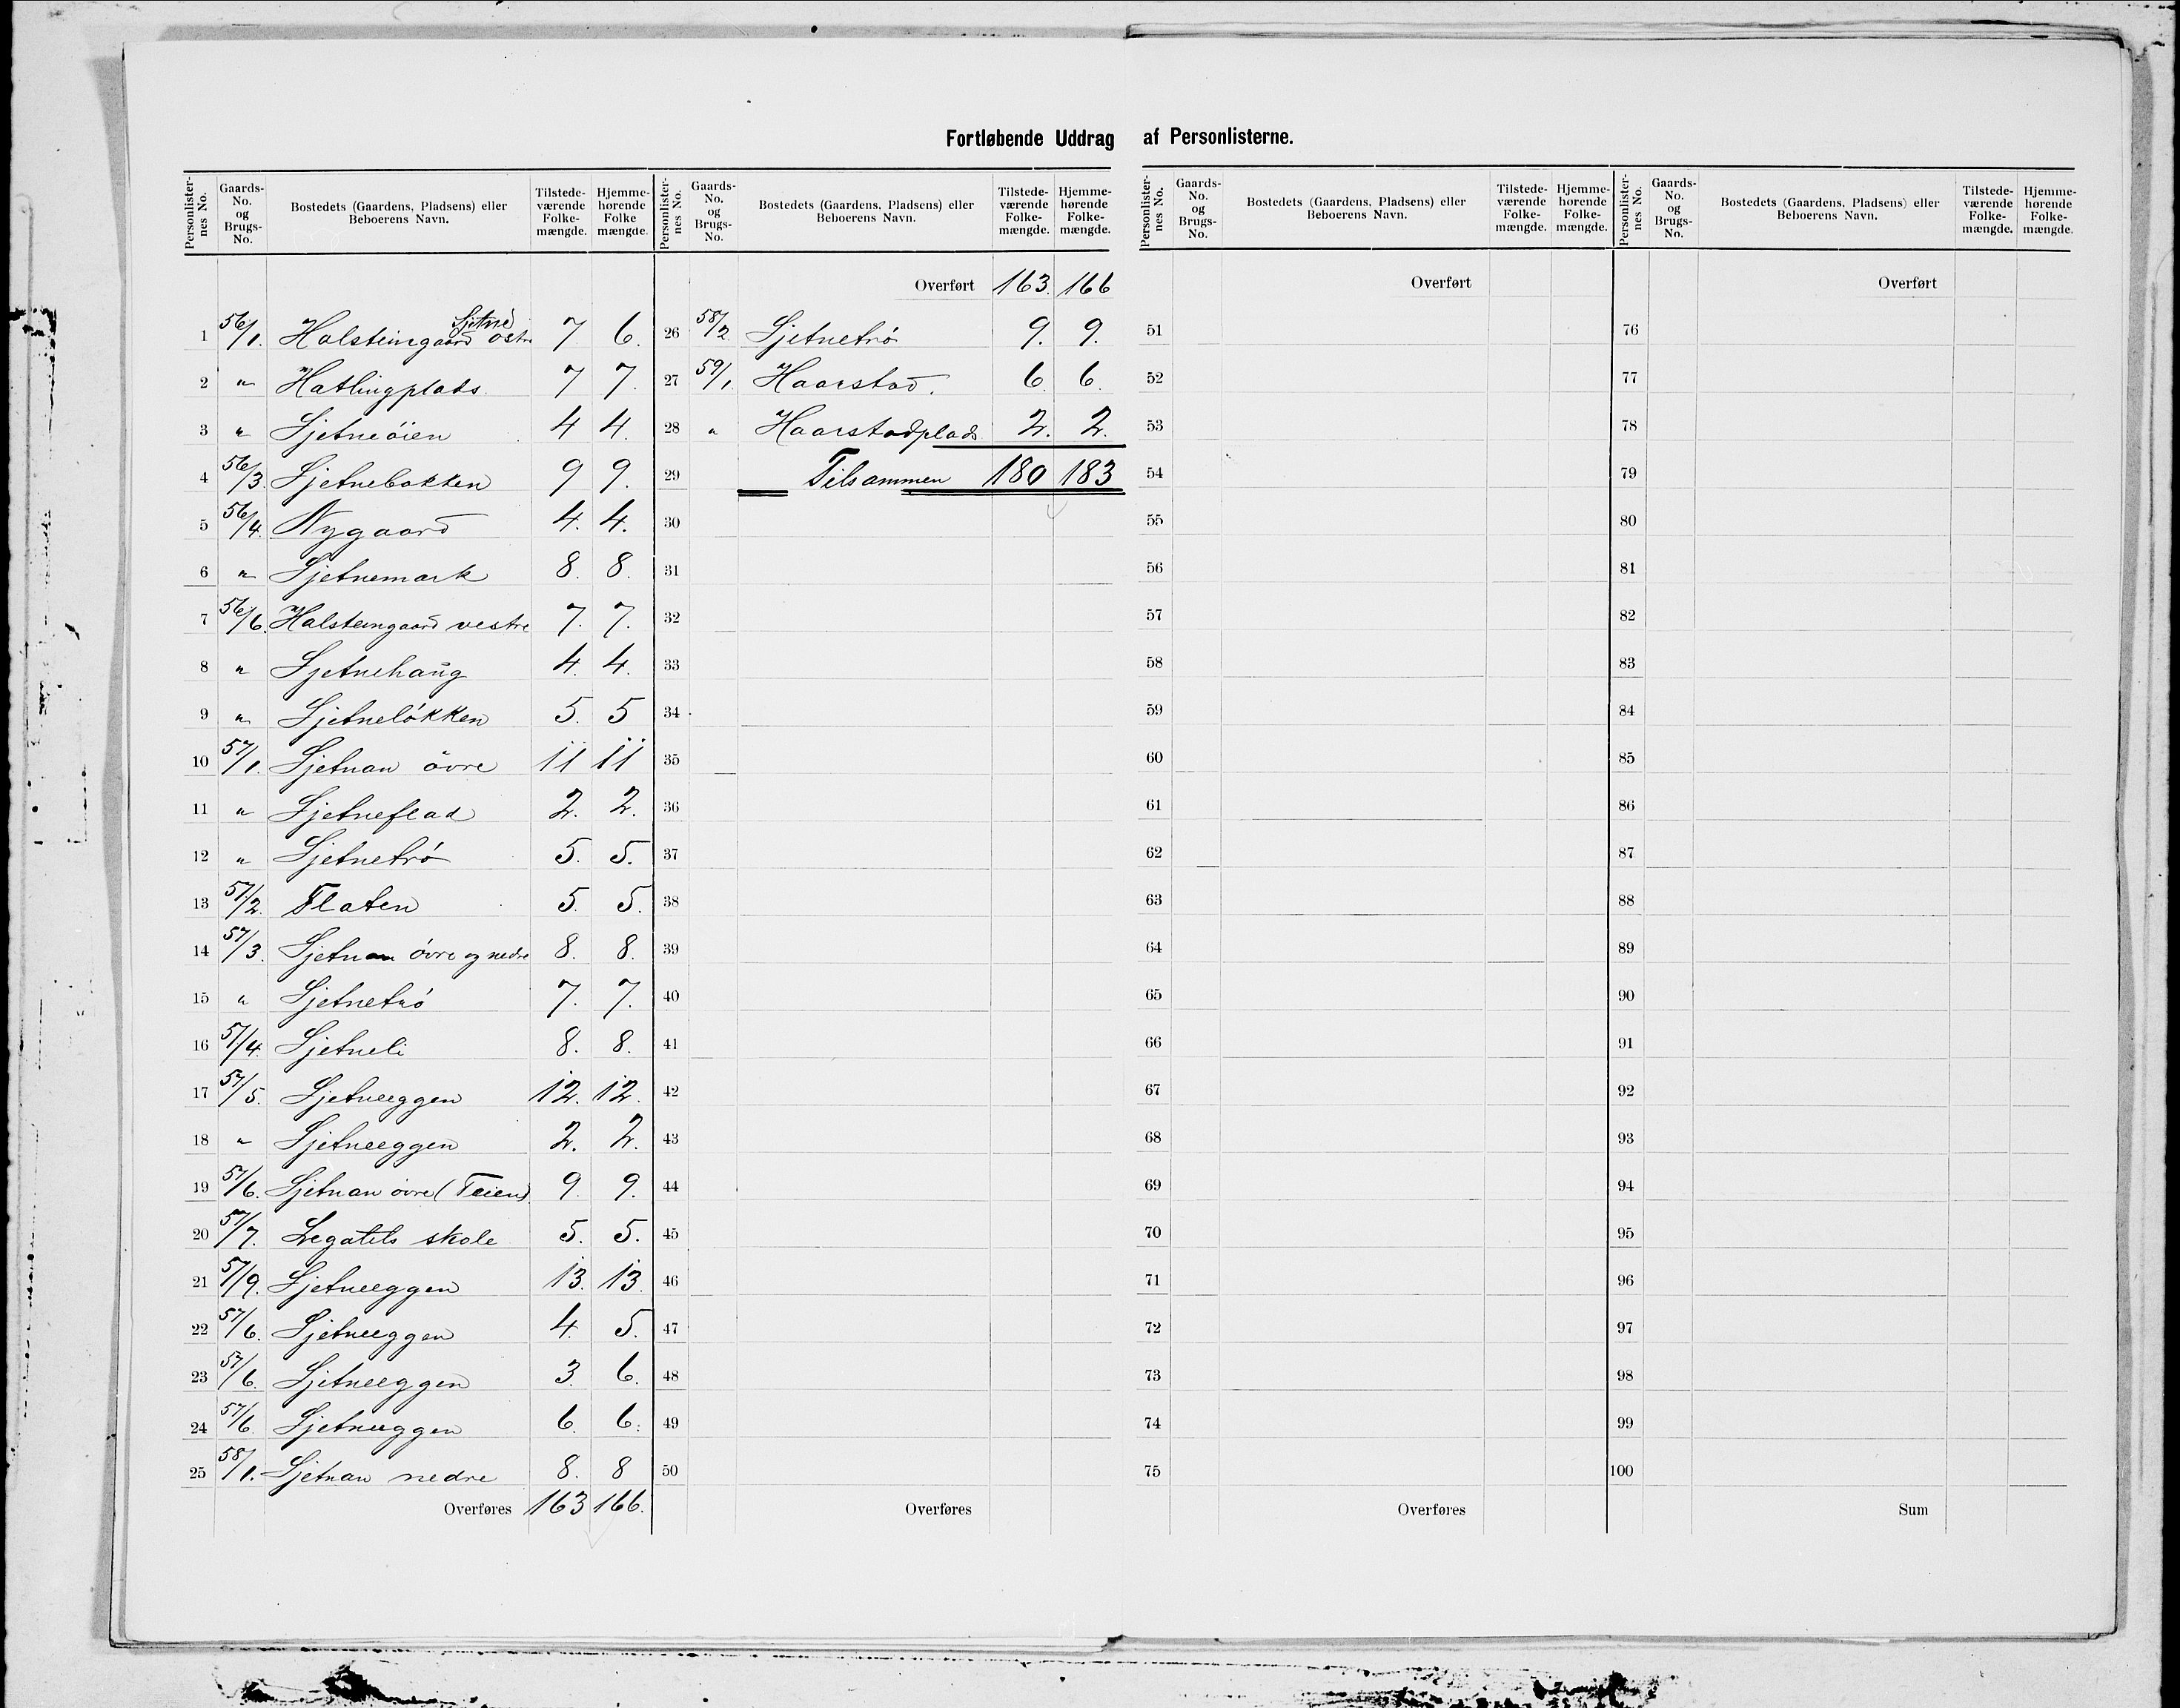 Fortløbende Uddrag af Personlisterne.
Personlisternes No. Gaards-No. og Brugs-No. Bostedets (Gaardens, Pladsens) eller Beboerens Navn. Tilstedeværende Folkemængde. Hjemmehørende Folkemængde.
1 56/1. Halsteingaard Sjetne østre 7 6.
2 " Hatlingplads. 7 7.
3 " Sjetneöien 4 4.
4 56/3. Sjetnebakken 9 9.
5 56/4. Nygaard 4. 4.
6 " Sjetnemark 8. 8.
7 56/6. Halsteingaard vestre 7. 7.
8 " Sjetnehaug 4. 4.
9 " Sjetneløkken 5. 5
10 57/1. Sjetnan övre 11 11
11 " Sjetneflad 2. 2.
12 " Sjetnetrø 5. 5.
13 57/2. Flaten 5. 5.
14 57/3. Sjetnan övre og nedre 8. 8.
15 " Sjetnetrø 7. 7.
16 57/4. Sjetneli 8. 8.
17 57/5. Sjetneeggen 12. 12.
18 " Sjetneeggen 2. 2.
19 57/6. Sjetnan övre (Teien) 9. 9.
20 57/7. Legatets skole 5. 5.
21 57/9. Sjetneeggen 13. 13.
22 57/6. Sjetneeggen 4. 5.
23 57/6. Sjetneeggen 3. 6.
24 57/6. Sjetneeggen 6. 6.
25 58/1. Sjetnan nedre 8. 8
Overføres 163 166.
Personlisternes No. Gaards-No. og Brugs-No. Bostedets (Gaardens, Pladsens) eller Beboerens Navn. Tilstedeværende Folkemængde. Hjemmehørende Folkemængde.
Overført 163. 166
26 58/2. Sjetnetrø 9. 9.
27 59/1. Haarstad. 6. 6.
28 " Haarstadplads 2. 2.
29 Tilsammen 180 183
30
31
32
33
34
35
36
37
38
39
40
41
42
43
44
45
46
47
48
49
50
Overføres
Personlisternes No. Gaards-No. og Brugs-No. Bostedets (Gaardens, Pladsens) eller Beboerens Navn. Tilstedeværende Folkemængde. Hjemmehørende Folkemængde.
Overført
51
52
53
54
55
56
57
58
59
60
61
62
63
64
65
66
67
68
69
70
71
72
73
74
75
Overføres
Personlisternes No. Gaards-No. og Brugs-No. Bostedets (Gaardens, Pladsens) eller Beboerens Navn. Tilstedeværende Folkemængde. Hjemmehørende Folkemængde.
Overført
76
77
78
79
80
81
82
83
84
85
86
87
88
89
90
91
92
93
94
95
96
97
98
99
100
Sum